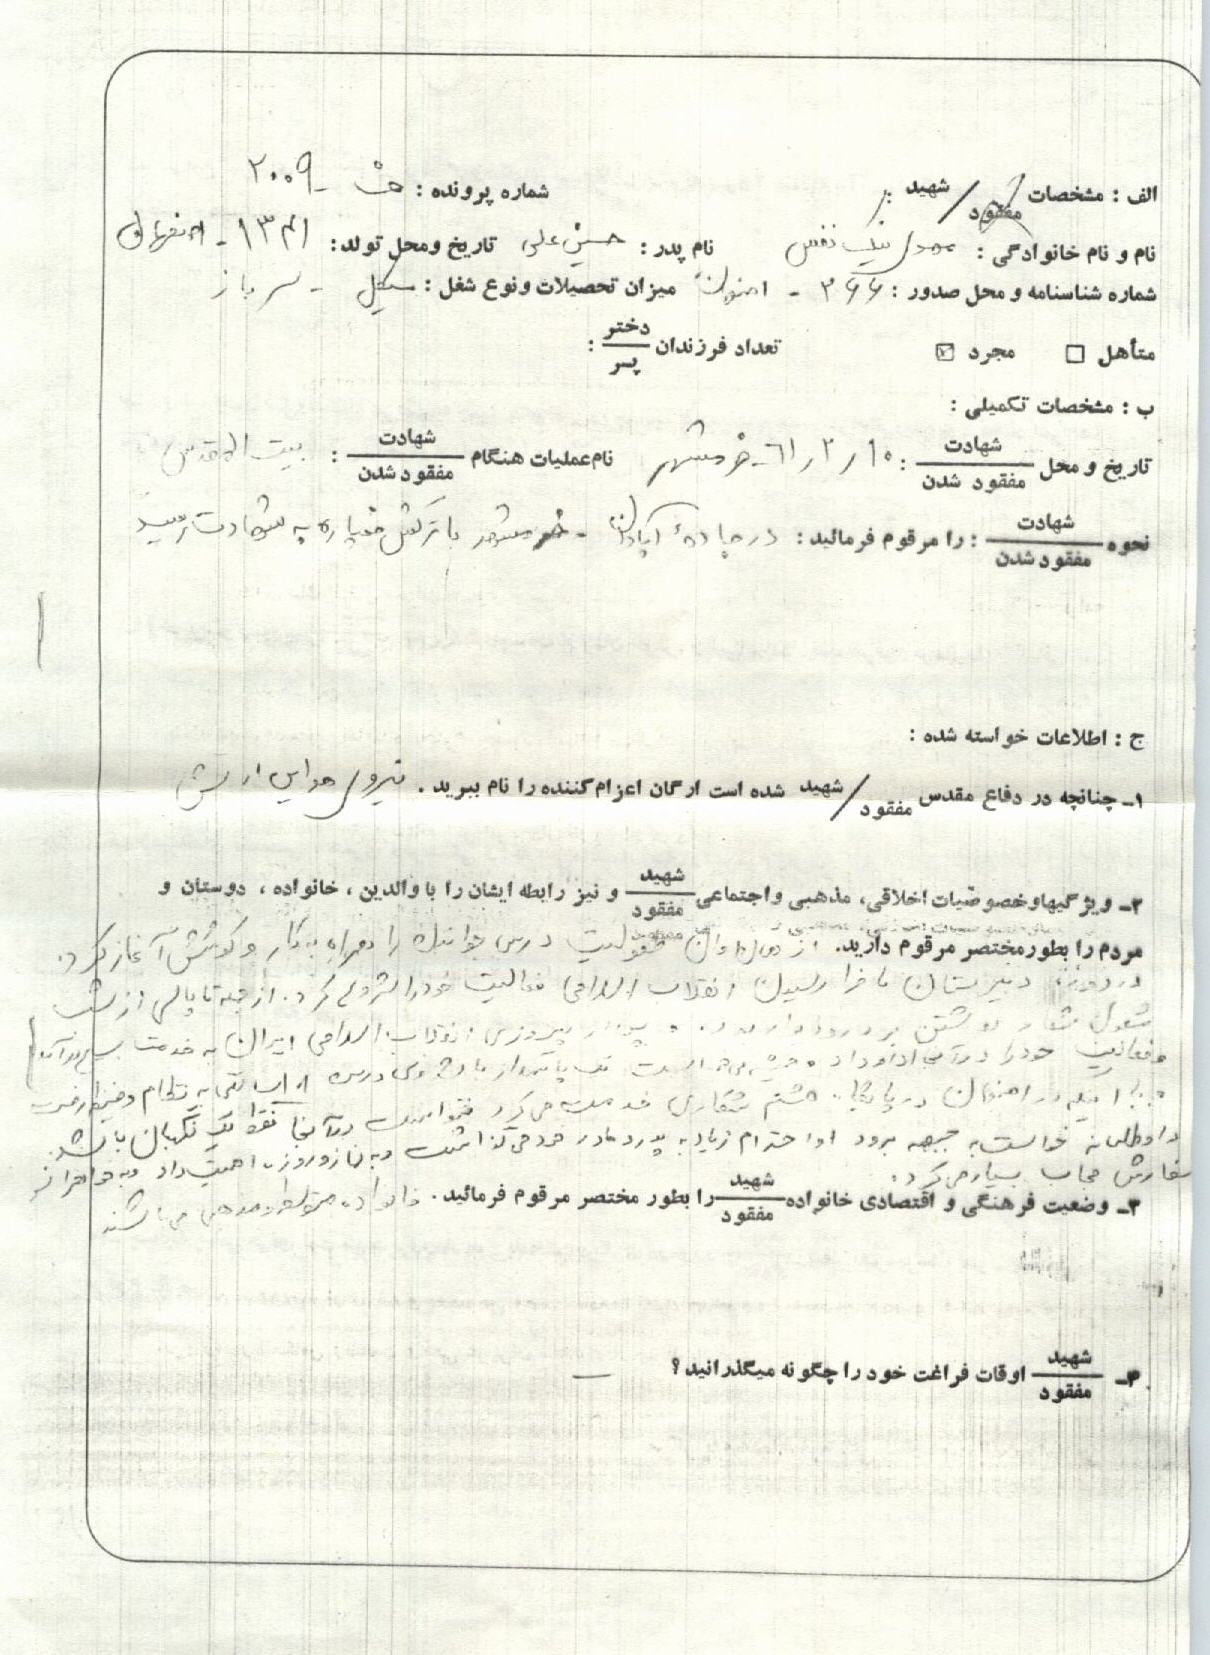 الف : مشخصات شهید / مفقود : شماره پرونده : ش - ۲۰۰۹
نام و نام خانوادگی : نیک نفس نام پدر : حسینعلی تاریخ ومحل تولد : ۱۳۴۱ -
شماره شناسنامه و محل صدور : ۳۶۶ - اصفهان میزان تحصیلات ونوع شغل : سیکل - سرباز
متأهل ☐ مجرد ☑ تعداد فرزندان دختر / پسر :
ب : مشخصات تکمیلی :
تاریخ و محل شهادت / مفقود شدن : ۱۰ / ۲ / ۶۱ - خرمشهر نام عملیات هنگام شهادت / مفقود شدن : بیت المقدس
نحوه شهادت / مفقود شدن : را مرقوم فرمائید : در جادهٔ آبادان - خرمشهر با ترکش خمپاره به شهادت رسید
ج : اطلاعات خواسته شده :
۱ـ چنانچه در دفاع مقدس شهید / مفقود شده است ارگان اعزام کننده را نام ببرید . نیروی هوایی ارتش
۲ـ ویژگیها وخصوصیات اخلاقی، مذهبی واجتماعی شهید / مفقود و نیز رابطه ایشان را با والدین ، خانواده ، دوستان و
مردم را بطور مختصر مرقوم دارید. از همان اوان طفولیت درس خواندن را همراه با کار و کوشش آغاز کرد.
در دوره دبیرستان با فرا رسیدن انقلاب اسلامی فعالیت خود را شروع کرد. از جمله تا پاسی از شب
مشغول شعار نوشتن بر دیوار بود. پس از پیروزی انقلاب اسلامی ایران به خدمت بسیج درآمد
و فعالیت خود را در آنجا ادامه داد
با اینکه در اصفهان در پایگاه هشتم شکاری خدمت می کرد در آنجا فقط یک نگهبان باشد
داوطلبانه خواست به جبهه برود او احترام زیاد به پدر و مادر خود می گذاشت و به نماز و روزه اهمیت داد و به خواهرانش
سفارش حجاب بسیار می کرد.
۳ـ وضعیت فرهنگی و اقتصادی خانواده شهید / مفقود را بطور مختصر مرقوم فرمائید . خانواده متوسط و مذهبی می باشند
۴ـ شهید / مفقود اوقات فراغت خود را چگونه میگذرانید ؟ —